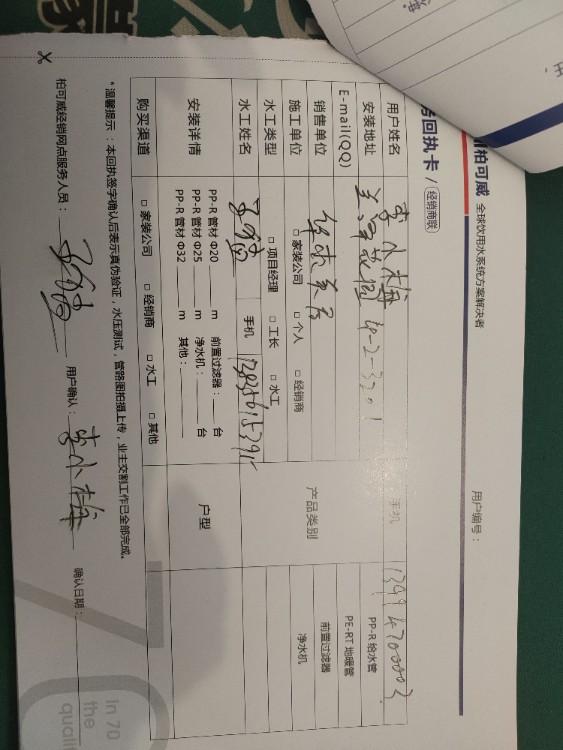 柏可威 全球饮用水系统方案解决者
回执卡 / 经销商联
用户编号：
用户姓名 李小梅 手机
安装地址 4-2-3201 PP-R 给水管
E-mail(QQ) PE-RT 地暖管
销售单位 产品类别 前置过滤器
施工单位 □ 家装公司 □ 个人 □ 经销商 净水机
水工类型 □ 项目经理 □ 工长 □ 水工
水工姓名 手机
安装详情 PP-R 管材 Φ20 ____ m 前置过滤器：____ 台 户型
PP-R 管材 Φ25 ____ m 净水机：____ 台
PP-R 管材 Φ32 ____ m 其他：____
购买渠道 □ 家装公司 □ 经销商 □ 水工 □ 其他
*温馨提示：本回执签字确认后表示真伪验证，水压测试，管路图拍摄上传，业主交割工作已全部完成。
柏可威经销网点服务人员： 用户确认：李小梅 确认日期：
In 70
the
quali